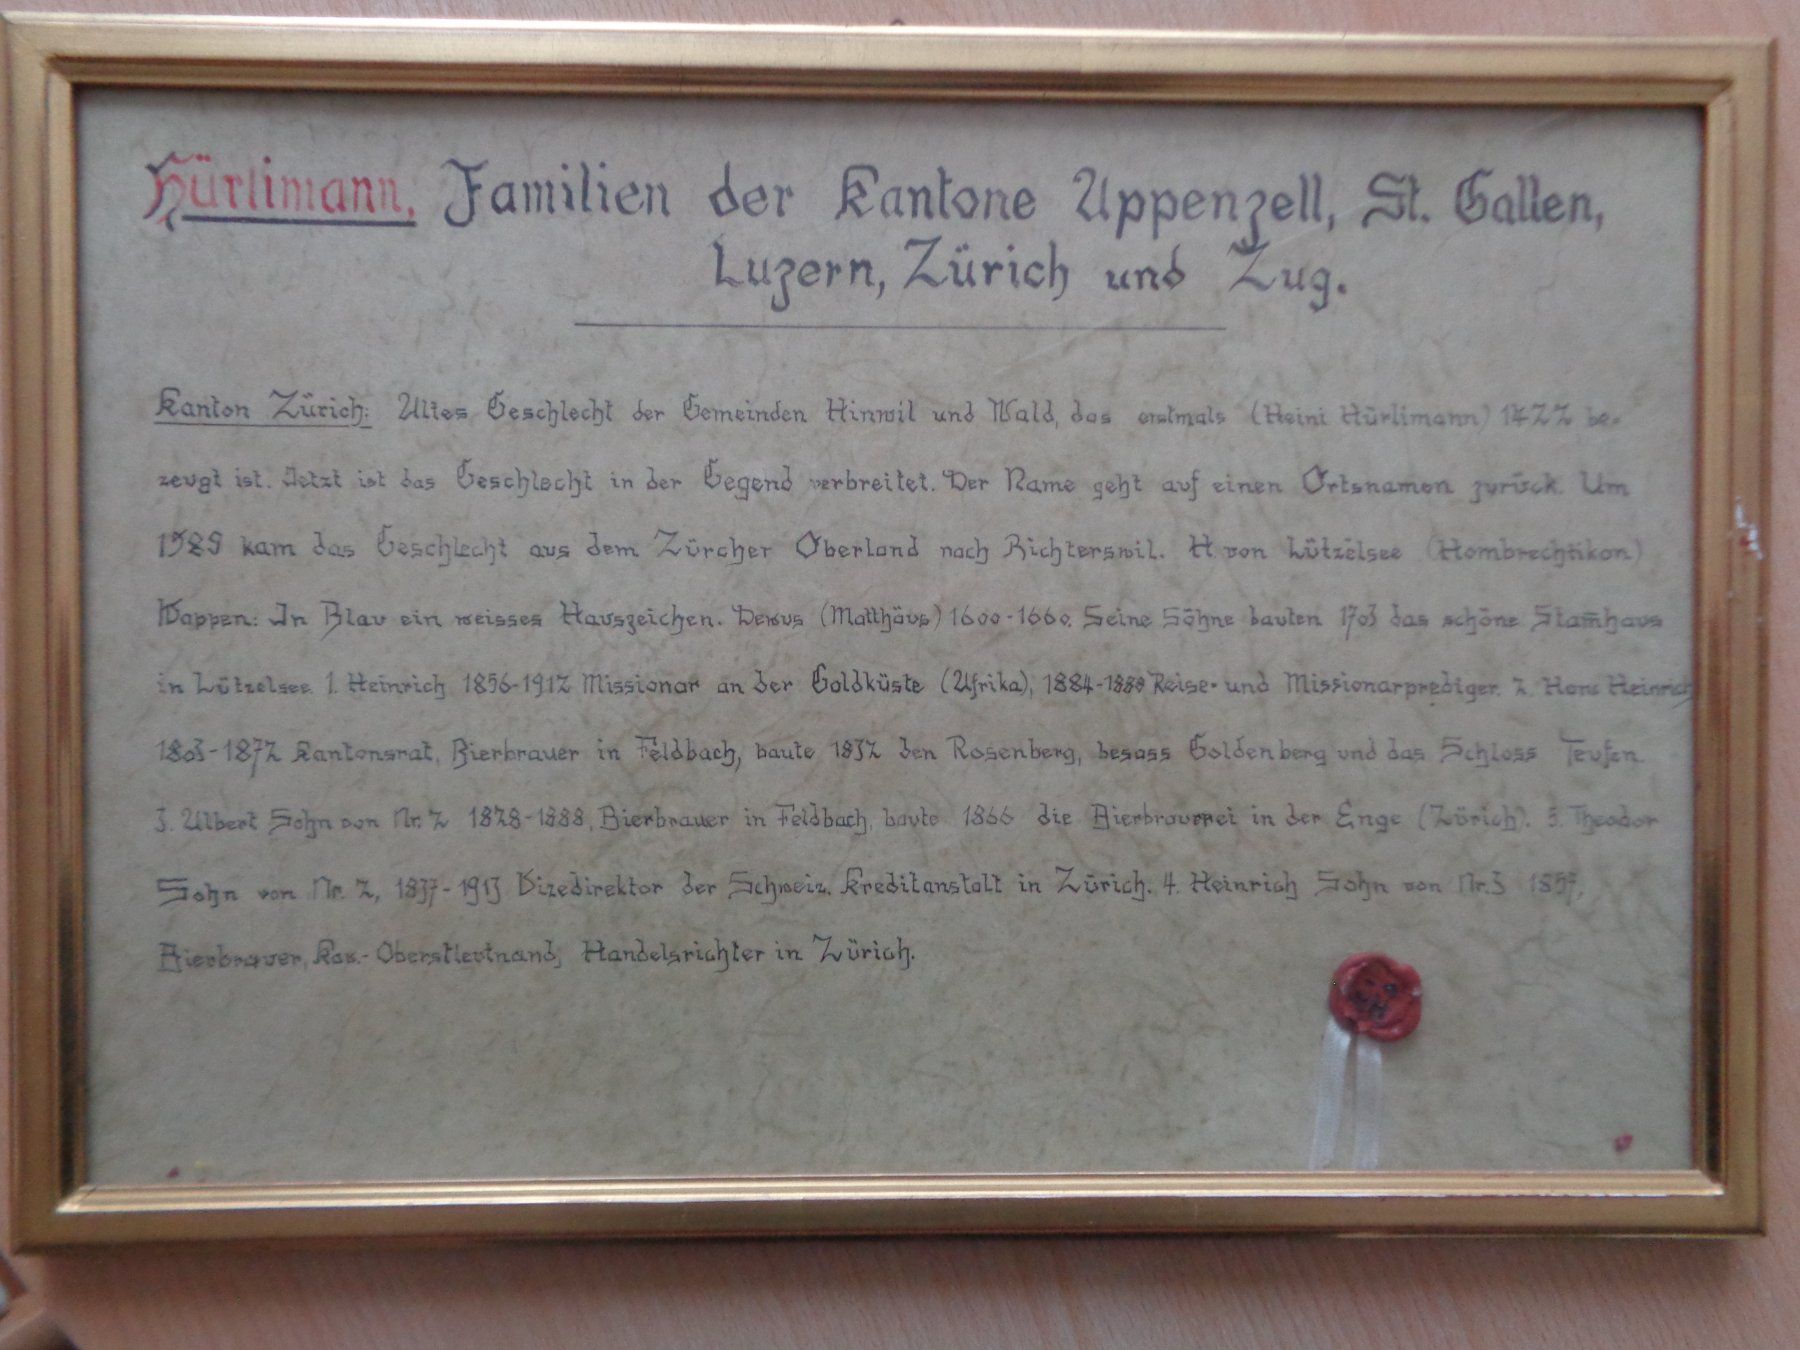 Hürlimann, Familien der Kantone Appenzell, St. Gallen,
Luzern, Zürich und Zug.
Kanton Zürich: Altes Geschlecht der Gemeinden Hinwil und Wald, das erstmals (Heini Hürlimann) 1422 be-
zeugt ist. Jetzt ist das Geschlecht in der Gegend verbreitet. Der Name geht auf einen Ortsnamen zurück. Um
kam das Geschlecht aus dem Zürcher Oberland nach Richterswil. H. von Lützelsee (Hombrechtikon)
Wappen: In Blau ein weisses Hauszeichen. Dewus (Matthäus) 1600-1660. Seine Söhne bauten 1703 das schöne Stam̅haus
in Lützelsee. 1. Heinrich 1856-1912 Missionar an der Goldküste (Afrika), 1884- Reise- und Missionarprediger. 2. Hans Heinrich
1803-1872 Kantonsrat, Bierbrauer in Feldbach, baute 1832 den Rosenberg, besass Goldenberg und das Schloss Teufen
3. Albert Sohn von Nr. 2 1828-1888, Bierbrauer in Feldbach, baute 1866 die Bierbrauerei in der Enge (Zürich). Theodor
Sohn von Nr. 2, 1837-1913 Vizedirektor der Schweiz. Kreditanstalt in Zürich. 4. Heinrich Sohn von Nr. 3 1857,
Bierbrauer, Oberstleutnand, Handelsrichter in Zürich.